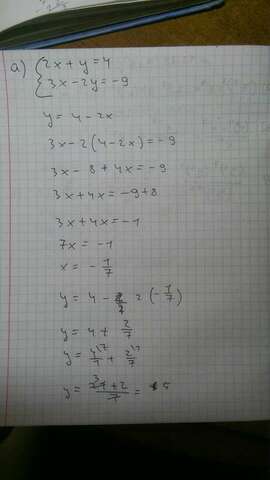 a) { 2x + y = 4
3x - 2y = -9
y = 4 - 2x
3x - 2(4 - 2x) = -9
3x - 8 + 4x = -9
3x + 4x = -9 + 8
3x + 4x = -1
7x = -1
x = - 1/7
y = 4 - 2 (- 1/7)
y = 4 + 2/7
y = 4/1 + 2/7
y = + 2/7 =